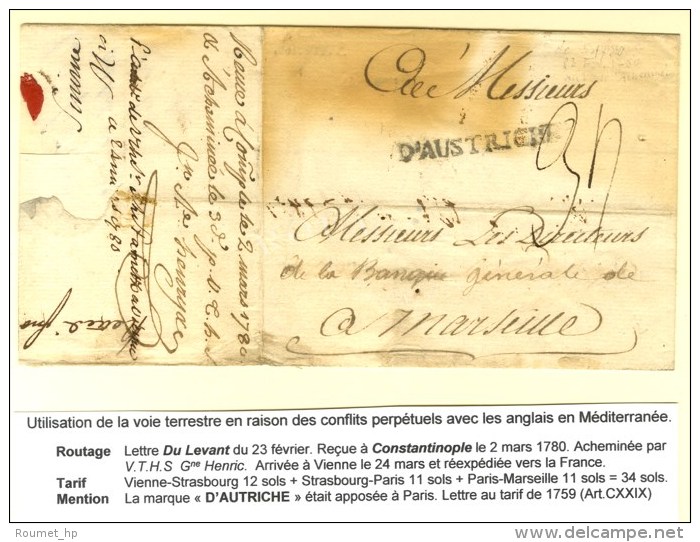 A Messieurs
D'AUSTRICHE
34
Messieurs Les Directeurs
de la Banque générale de
a Marseille
Receue a Consple le 2 mars 1780
& Acheminée le 3 d° p. V. T. h. S.
a Esmi 1780
Utilisation de la voie terrestre en raison des conflits perpétuels avec les anglais en Méditerranée.
Routage Lettre Du Levant du 23 février. Reçue à Constantinople le 2 mars 1780. Acheminée par
V.T.H.S Gne Henric. Arrivée à Vienne le 24 mars et réexpédiée vers la France.
Tarif Vienne-Strasbourg 12 sols + Strasbourg-Paris 11 sols + Paris-Marseille 11 sols = 34 sols.
Mention La marque « D'AUTRICHE » était apposée à Paris. Lettre au tarif de 1759 (Art.CXXIX)
Roumet_hp
delcampe.net